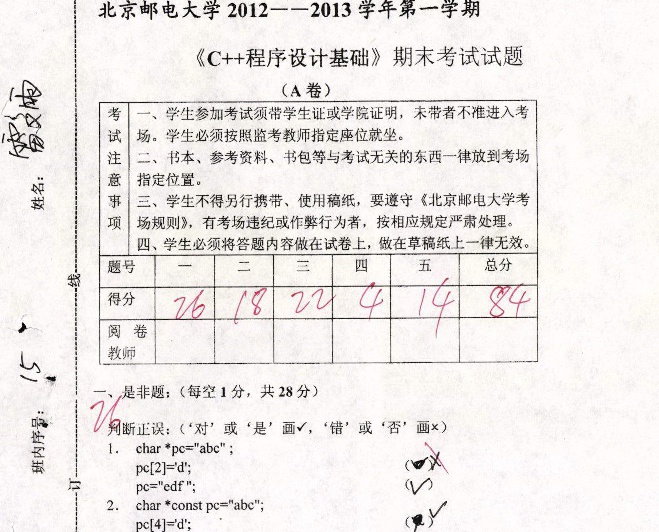 北京邮电大学 2012——2013 学年第一学期
《C++程序设计基础》期末考试试题
（A 卷）
考试注意事项
一、学生参加考试须带学生证或学院证明，未带者不准进入考
场。学生必须按照监考教师指定座位就坐。
二、书本、参考资料、书包等与考试无关的东西一律放到考场
指定位置。
三、学生不得另行携带、使用稿纸，要遵守《北京邮电大学考
场规则》，有考场违纪或作弊行为者，按相应规定严肃处理。
四、学生必须将答题内容做在试卷上，做在草稿纸上一律无效。
题号 一 二 三 四 五 总分
得分 26 18 22 4 14 84
阅 卷
教师
一、是非题；（每空 1 分，共 28 分）
26
判断正误:（‘对’或‘是’画✓，‘错’或‘否’画×）
1. char *pc="abc" ;
pc[2]='d';
pc="edf "; (✓)
2. char *const pc="abc";
pc[4]='d';
姓名：
班内序号： 15
线
订